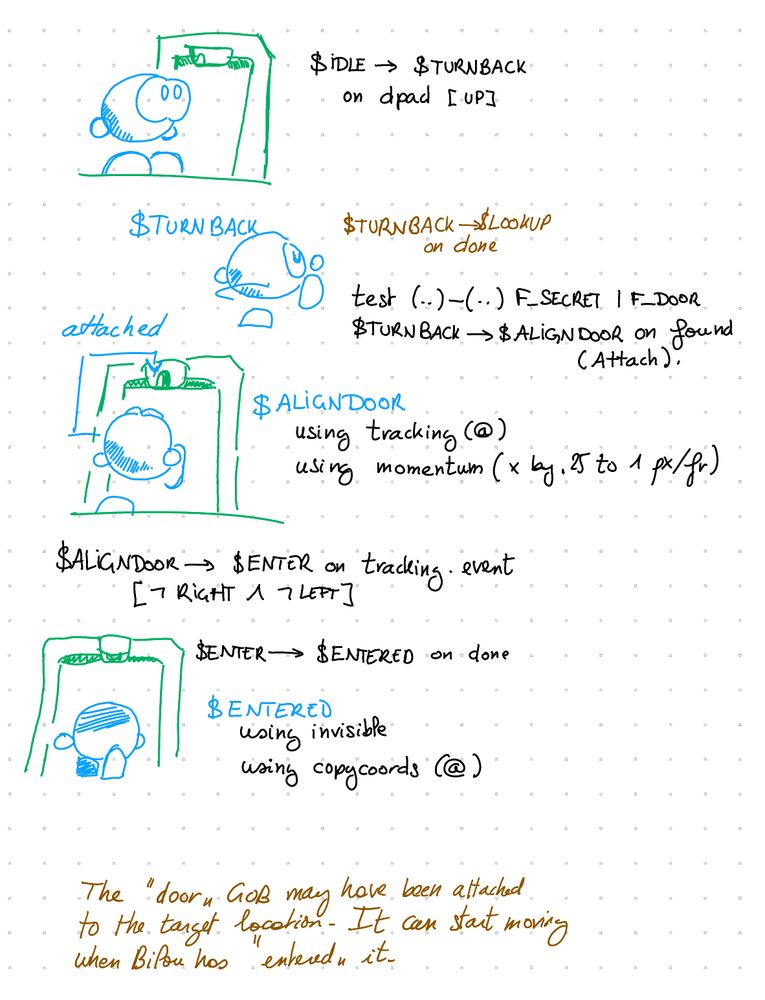 $IDLE → $TURNBACK
on dpad [UP]
$TURNBACK
$TURNBACK → $LOOKUP
on done
test (..)–(..) F_SECRET | F_DOOR
$TURNBACK → $ALIGNDOOR on found
(Attach).
attached
$ALIGNDOOR
using tracking (@)
using momentum (x by .25 to 1 px/fr)
$ALIGNDOOR → $ENTER on tracking.event
[¬ RIGHT ∧ ¬ LEFT]
$ENTER → $ENTERED on done
$ENTERED
using invisible
using copycoords (@)
The "door" GOB may have been attached
to the target location - It can start moving
when Bilou has "entered" it.